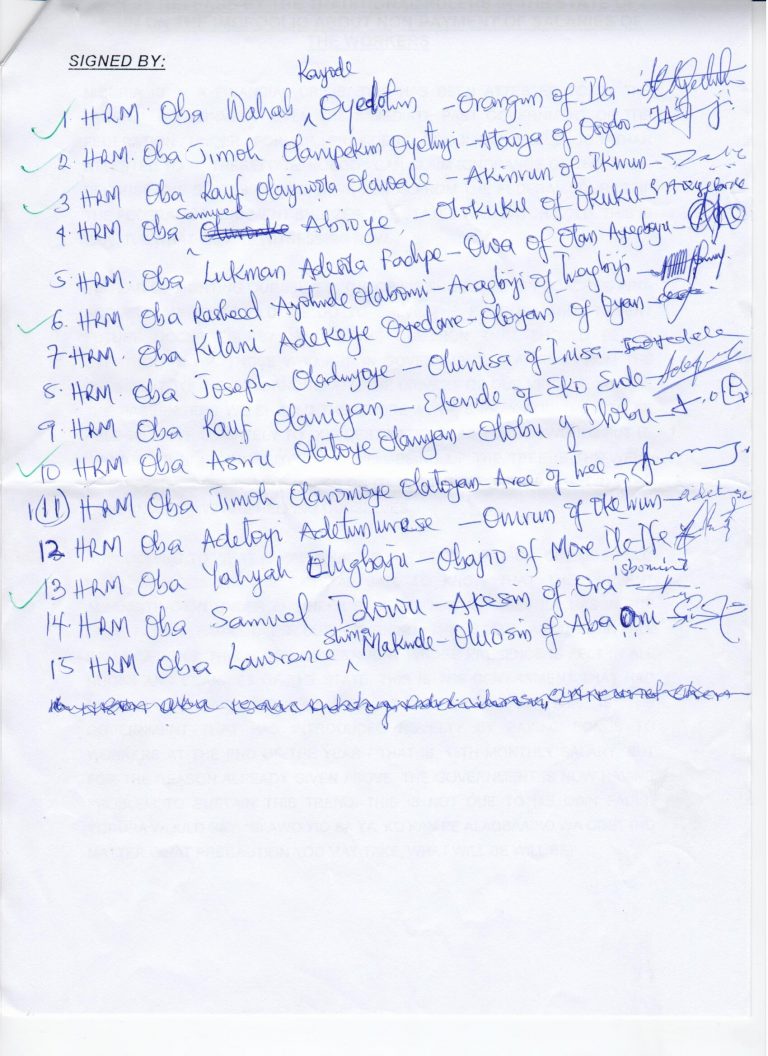 SIGNED BY:
1 HRM. Oba Wahab Kayode Oyedotun - Orangun of Ila -
2. HRM. Oba Jimoh Olanipekun Oyetunji - Ataoja of Osogbo -
3 HRM Oba Rauf Olayiwola Olawale - Akinrun of Ikirun -
4. HRM Oba Samuel Abioye, - Olokuku of Okuku
5. HRM. Oba Lukman Adesola Fadipe - Owa of Otan-Ayegbaju -
6. HRM Oba Rasheed Ayotunde Olabomi - Aragbiji of Iragbiji -
7. HRM. Oba Kilani Adekeye Oyedare - Oloyan of Oyan
8. HRM Oba Joseph Oladunjoye - Olunisa of Inisa -
9. HRM Oba Rauf Olaniyan - Ekende of Eko Ende -
10 HRM Oba Asiru Olatoye Olaniyan - Olobu of Ilobu -
(11) HRM Oba Jimoh Olaromoye Olatoyan - Aree of Iree -
12 HRM Oba Adetoyi Adetunlurese - Onirun of Oke Irun -
13 HRM Oba Yahyah Elugbaju - Obajio of More Ile-Ife
14. HRM Oba Samuel Idowu - Akesin of Ora Igbomina -
15 HRM Oba Lawrance Shina Makinde - Oluosin of Aba Oni -